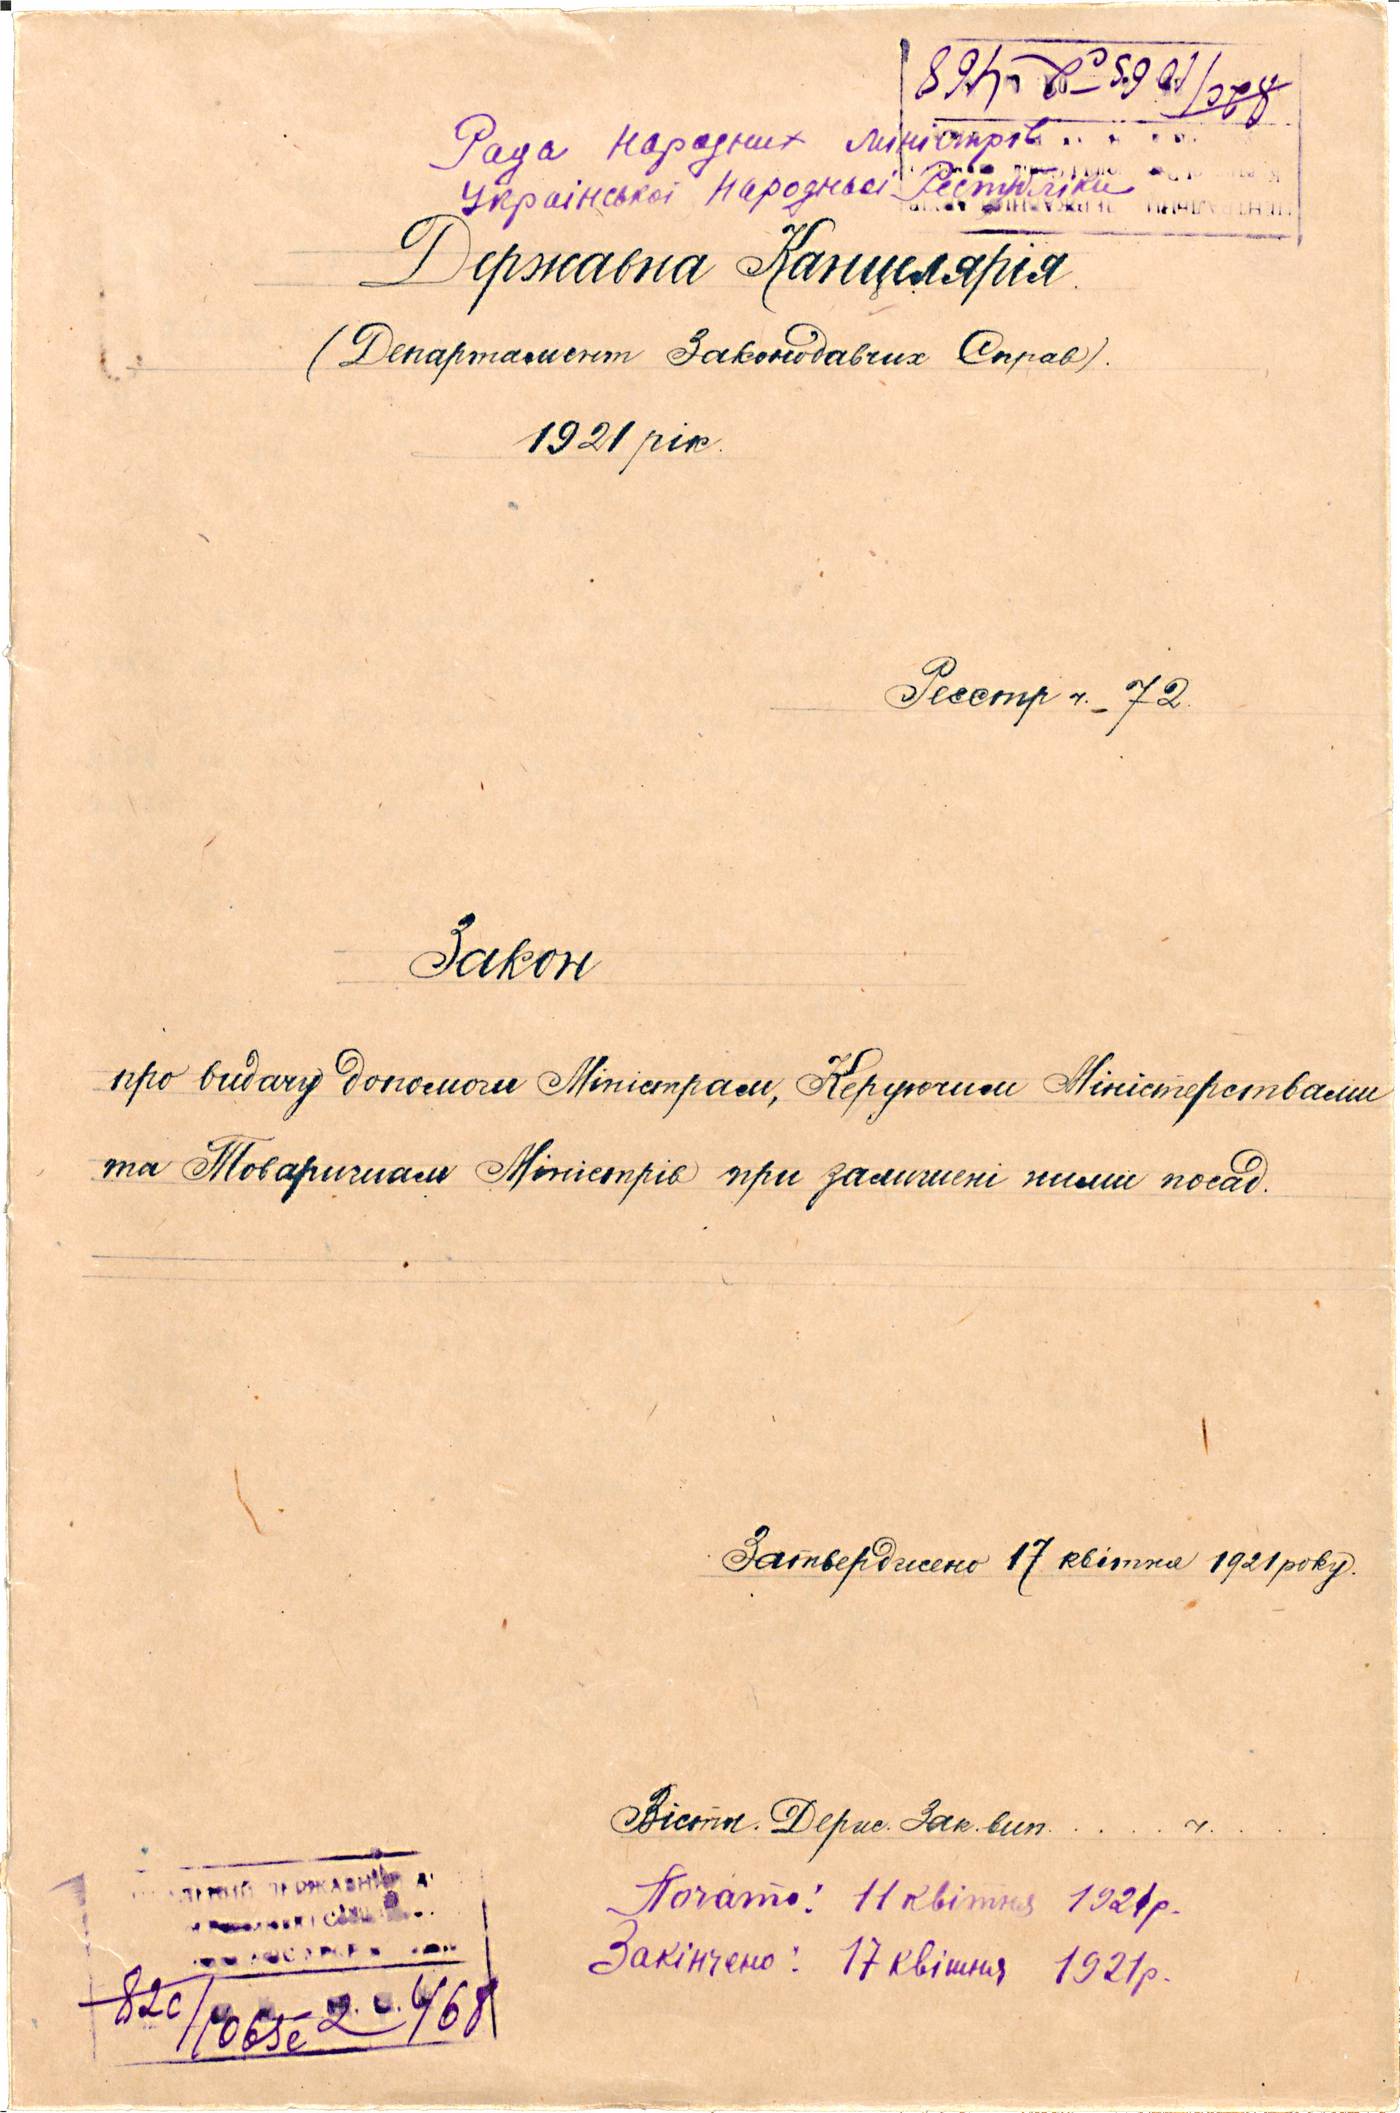 Рада Народних Міністрів
Української Народньої Республіки
Державна Канцелярія
(Департамент Законодавчих Справ).
1921 рік.
Реєстр ч. 72.
Закон
про видачу допомоги Міністрам, Керуючим Міністерствами
та Товаришам Міністрів при залишені ними посад.
Затверджено 17 квітня 1921 року.
Вістн. Держ. Зак. вип. . . . . ч. . . . .
Почато: 11 квітня 1921 р.
Закінчено: 17 квітня 1921 р.